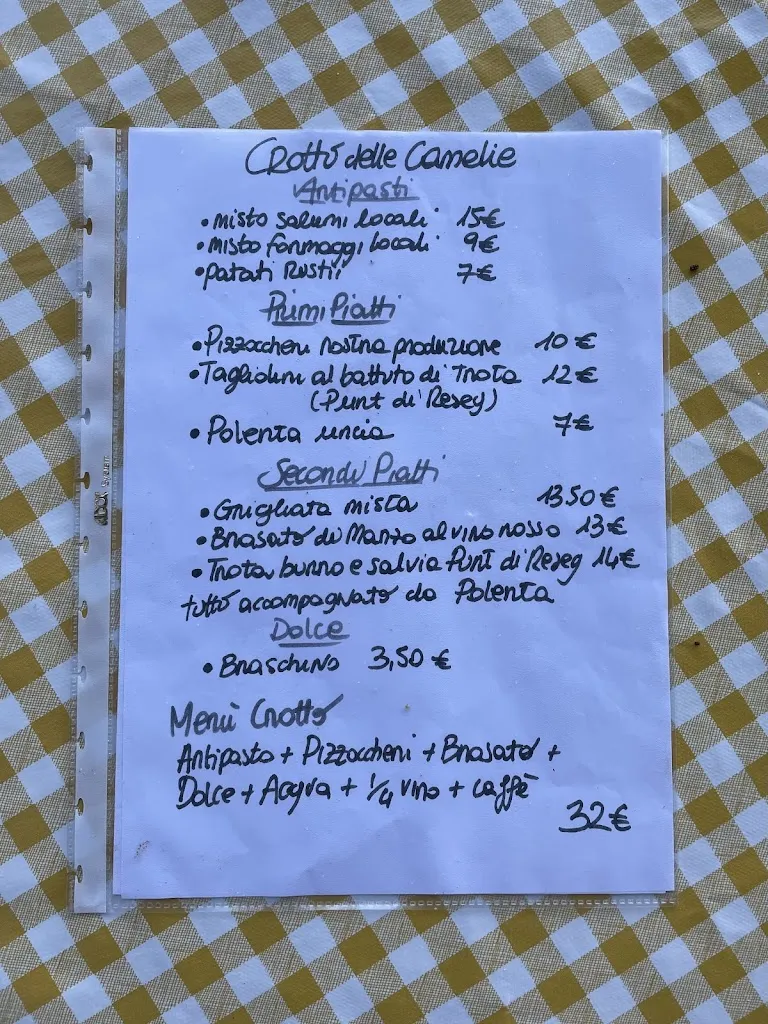 Crotto delle Camelie
Antipasti
• misto salumi locali 15€
• misto formaggi locali 9€
• patati Rustii 7€
Primi Piatti
• Pizzoccheri nostra produzione 10€
• Tagliolini al battuto di Trota 12€
(Punt di Reseg)
• Polenta uncia 7€
Secondi Piatti
• Grigliata mista 13 50€
• Brasato di Manzo al vino rosso 13€
• Trota burro e salvia Punt di Reseg 14€
tutto accompagnato da Polenta
Dolce
• Braschino 3,50€
Menù Crotto
Antipasto + Pizzoccheri + Brasato +
Dolce + Acqua + 1/4 vino + caffè
32€